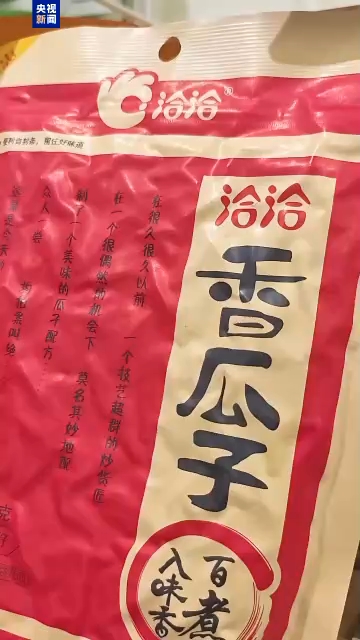 央视
新闻
洽洽®
洽洽
香瓜子
百煮
入味香
在很久很久以前
一个技艺超群的炒货匠
在一个很偶然的机会下
莫名其妙地配
制了一个美味的瓜子配方
众人一尝